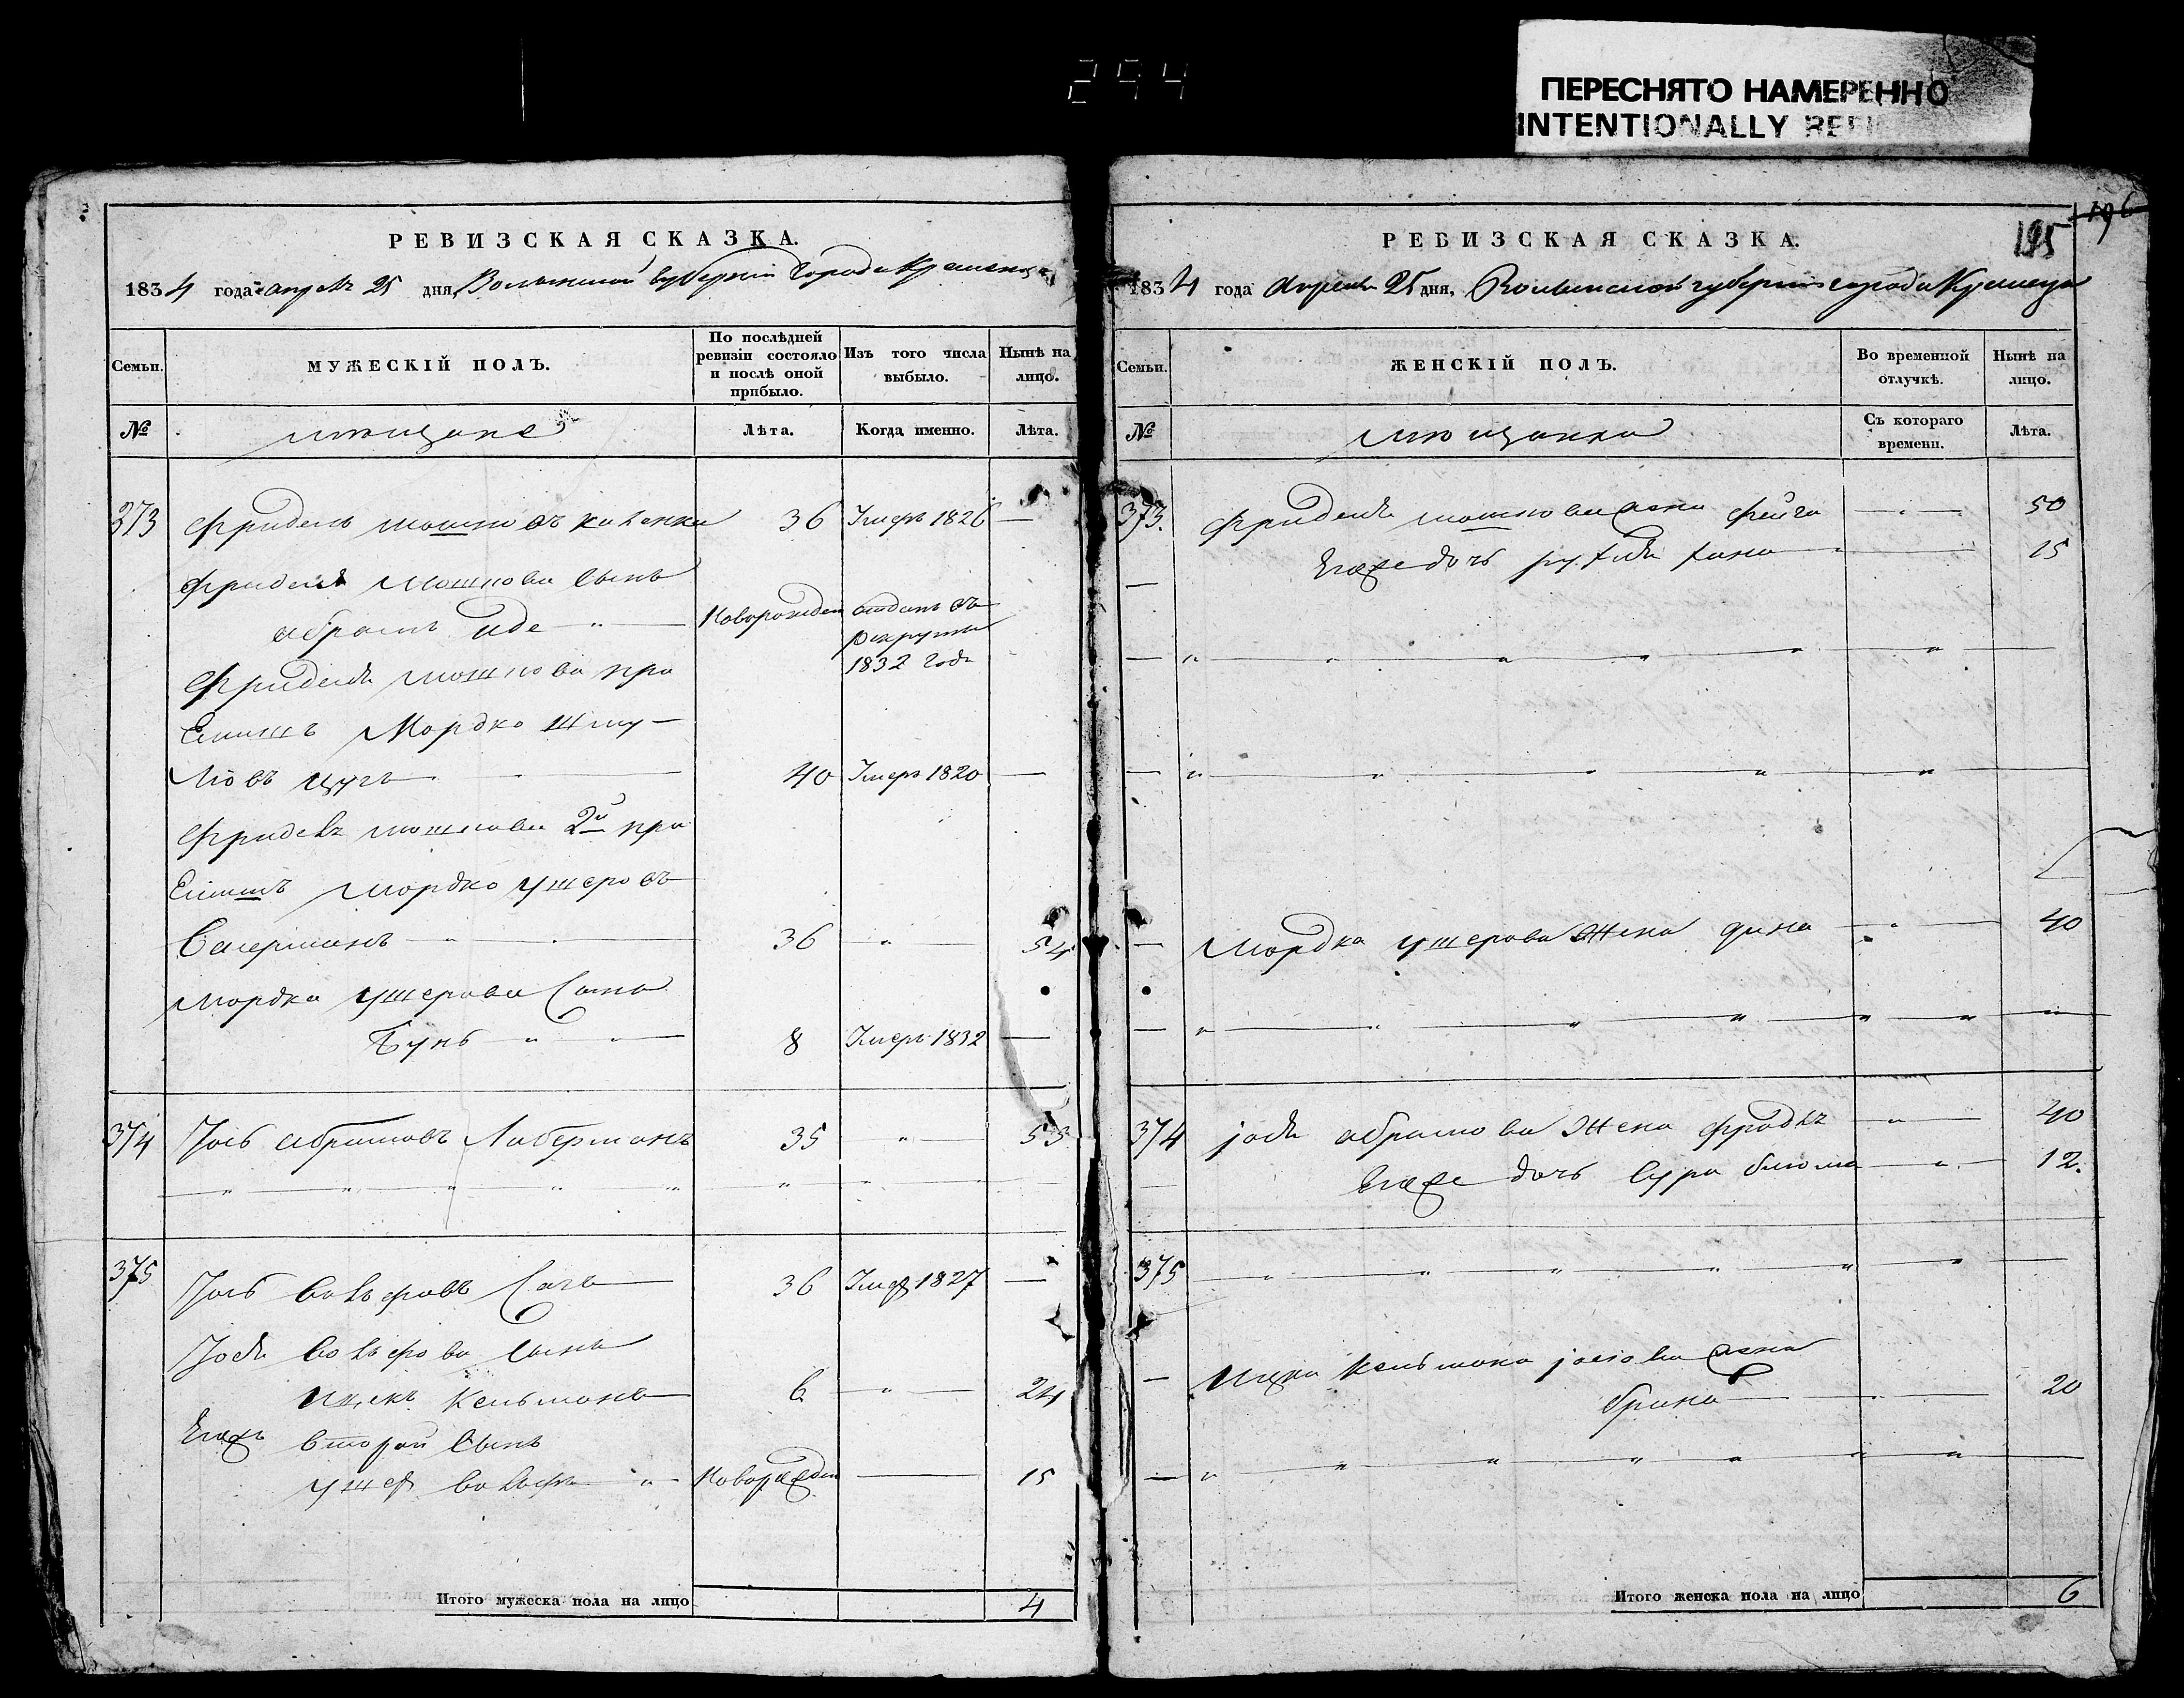 294
ПЕРЕСНЯТО НАМЕРЕННО
INTENTIONALLY
РЕВИЗСКАЯ СКАЗКА.
1834 года апрель 25 дня, Волынской губерніи города Кременца
Семьи.
МУЖЕСКІЙ ПОЛЪ.
По послѣдней ревизіи состояло и послѣ оной прибыло.
Изъ того числа выбыло.
Нынѣ на лицо.
№
мѣщане
Лѣта.
Когда именно.
Лѣта.
373 Фридель мошковъ 36 Умеръ 1826 —
Фриделя Мошкова Сынъ
абрамъ Иде Новорожден отданъ въ
рекруты
1832 года
Фриделя мошкова при
Емышъ Мордко Шму-
40 Умеръ 1820 —
Фриделя мошкова 2й при
Емышъ Мордко ушеровъ
36 54
Мордка ушерова Сынъ
Бунъ 8 Умеръ 1832 —
374 Іось абрамовъ Либерманъ 35 53
375 Іось Волъфовъ 36 Умеръ 1827 —
Іося Волъфова Сынъ
Ицекъ Кельманъ 6 24
Егожъ второй Сынъ
ушеръ волъфъ Новорожден 15
Итого мужеска пола на лицо 4
РЕВИЗСКАЯ СКАЗКА.
195
196
1834 года Апреля 25 дня, Волынской губерніи города Кременца
Семьи.
ЖЕНСКІЙ ПОЛЪ.
Во временной отлучкѣ.
Нынѣ на лицо.
№
мѣщанки
Съ котораго времени.
Лѣта.
373. Фриделя мошкова жена фейга 50
Егоже дочь 15
Мордка ушерова Жена 40
374 іося абрамова Жена фрадль 40
Егоже дочь Сура блюма 12.
375
Ицка Кельмана іосіова жена
брина 20
Итого женска пола на лицо 6